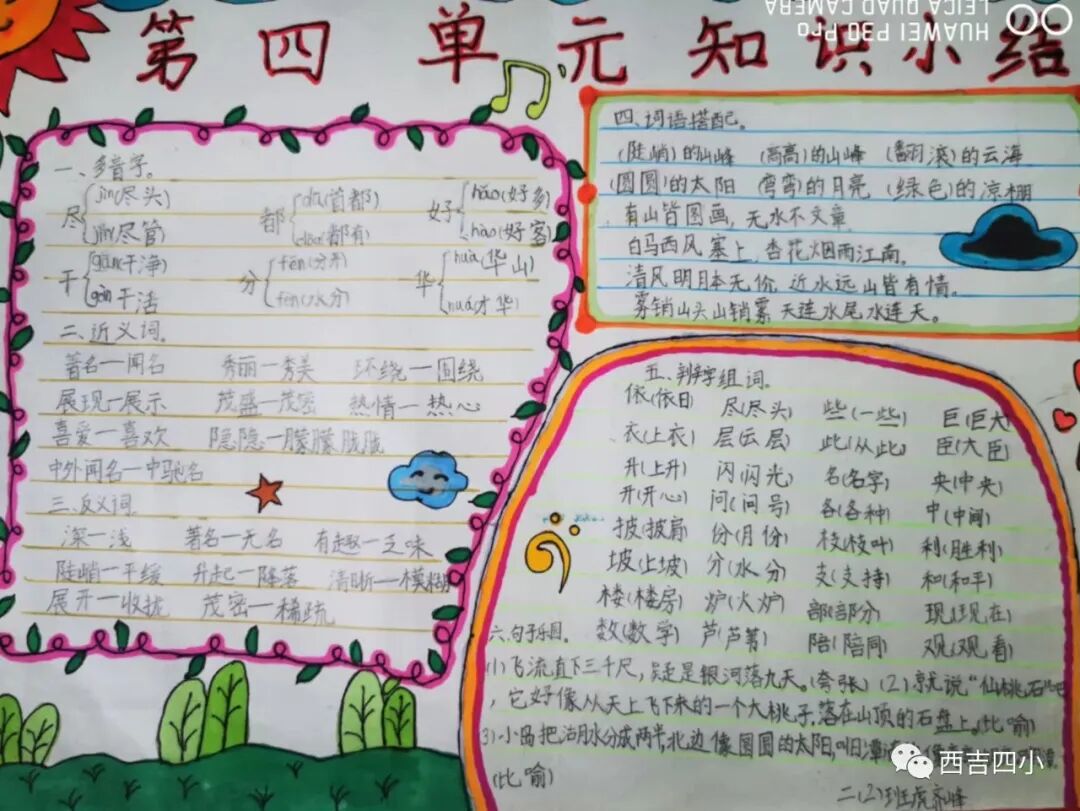 第四单元知识小结
HUAWEI P30 Pro
LEICA QUAD CAMERA
一、多音字。
尽 jǐn(尽头) 都 dū(首都) 好 hǎo(好多)
jǐn(尽管) dōu(都有) hào(好客)
干 gān(干净) 分 fēn(分开) 华 huà(华山)
gàn(干活) fèn(水分) huá(才华)
二、近义词。
著名—闻名 秀丽—秀美 环绕—围绕
展现—展示 茂盛—茂密 热情—热心
喜爱—喜欢 隐隐—朦朦胧胧
中外闻名—中驰名
三、反义词。
深—浅 著名—无名 有趣—乏味
陡峭—平缓 升起—降落 清晰—模糊
展开—收拢 茂密—稀疏
四、词语搭配。
(陡峭)的山峰 (高高)的山峰 (翻滚)的云海
(圆圆)的太阳 (弯弯)的月亮 (绿色)的凉棚
有山皆图画,无水不文章
白马西风塞上,杏花烟雨江南。
清风明月本无价 近水远山皆有情。
雾锁山头山锁雾 天连水尾水连天。
五、辨字组词。
依(依旧) 尽(尽头) 些(一些) 巨(巨大)
衣(上衣) 层(云层) 此(从此) 臣(大臣)
升(上升) 闪(闪光) 名(名字) 央(中央)
开(开心) 问(问号) 各(各种) 中(中间)
披(披肩) 份(月份) 枝(枝叶) 利(胜利)
坡(山坡) 分(水分) 支(支持) 和(和平)
楼(楼房) 炉(火炉) 部(部分) 现(现在)
数(数学) 芦(芦苇) 陪(陪同) 观(观看)
六、句子乐园。
(1)飞流直下三千尺,疑是银河落九天。(夸张) (2)就说“仙桃石”吧
,它好像从天上飞下来的一个大桃子,落在山顶的石盘上。(比喻)
3)小岛把湖水分成两半,北边像圆圆的太阳,叫
(比喻)
二(2)班虎齐峰
西吉四小